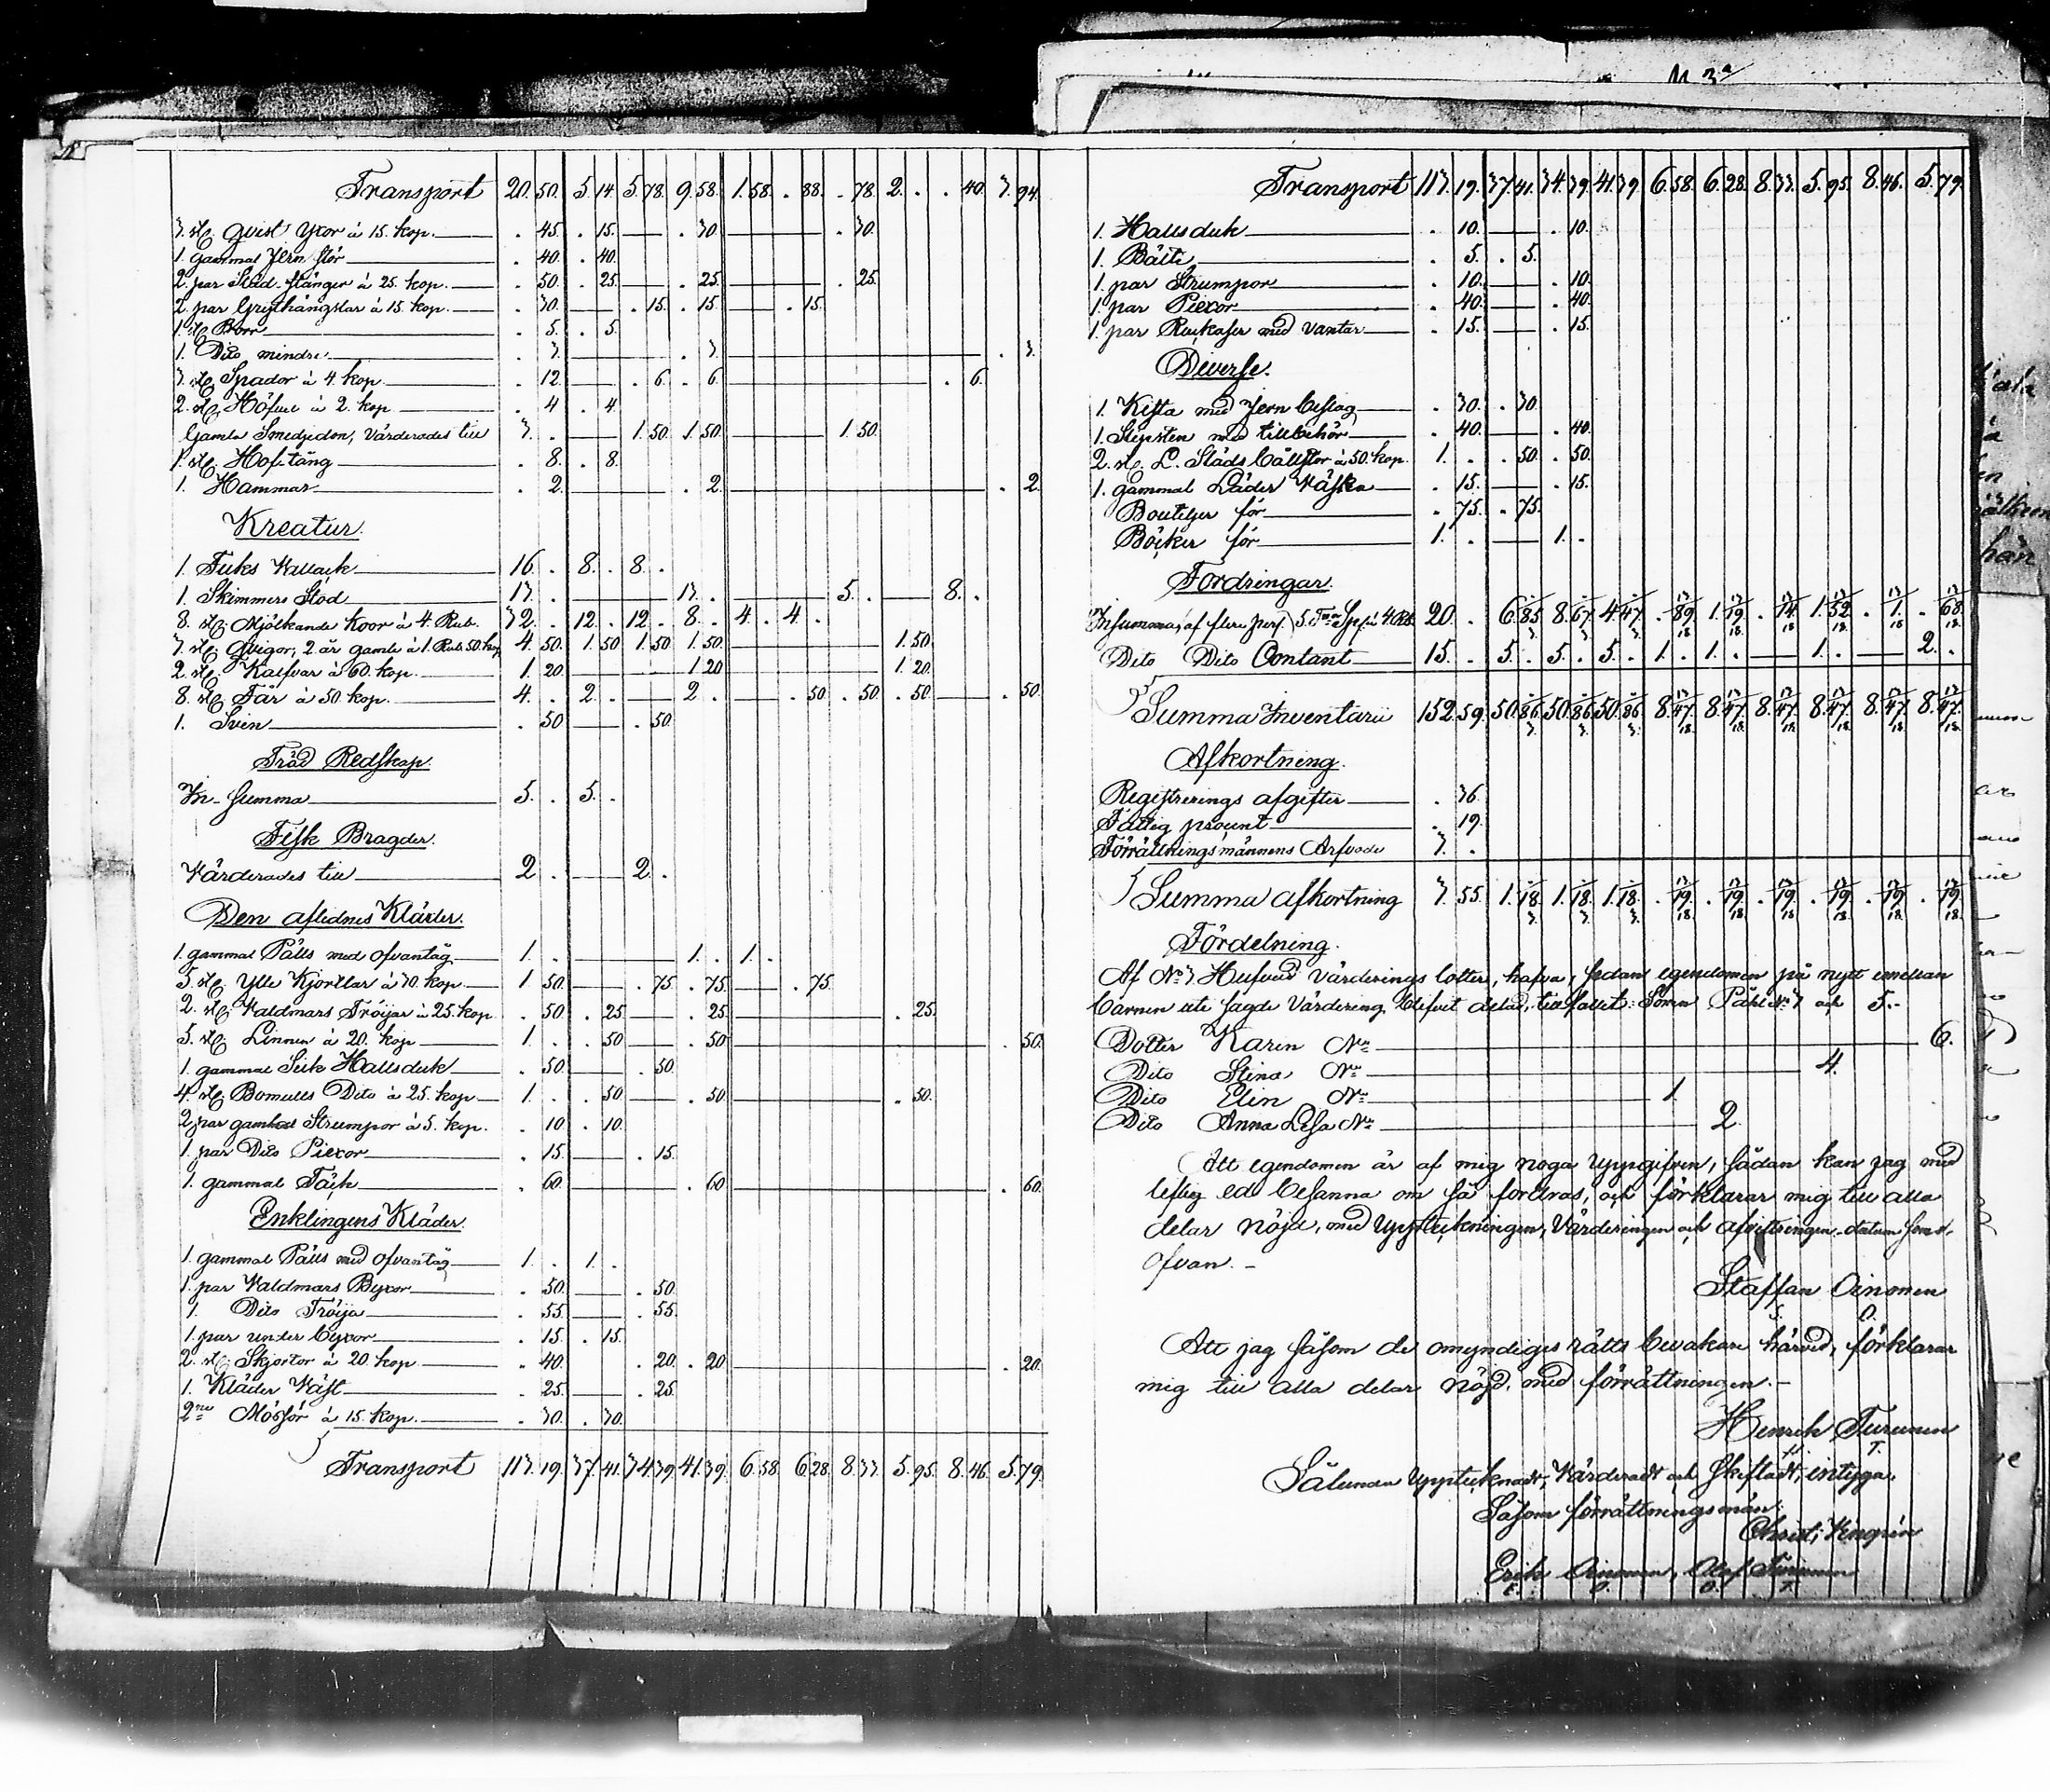 Transport 20. 50. 5. 14. 5. 78. 9. 58. 1. 58. . 88. . 78. 2. . . 40. 3. 94.
3. st. qvist Yxor à 15. kop. . 45. . 15. . 30 . 30.
1. gammal Jern stör . 40. . 40.
2. par Städ-stänger à 25. kop. . 50. . 25. . 25. . 25.
2. par Grythängslar à 15. kop. . 30. . 15. . 15. . 15.
1. st. Borr . 5. . 5.
1. Dito mindre . 3. . 3. . 3.
3. st. Spador à 4. kop. . 12. . 6. . 6. . 6.
2. st. Höfvel à 2. kop . 4. . 4.
Gamla Smedjedon, Värderades till 3. . 1. 50. 1. 50. 1. 50.
1. st. Hoftång . 8. . 8.
1. Hammar . 2. . 2. . 2.
Kreatur.
1. Fuks Vallack 16. . 8. . 8. .
1. Skimmers Stod 13. . 13. . 5. . 8. .
8. st. Mjölkande Koor à 4. Rub. 32. . 12. . 12. . 8. . 4. . 4. .
3. st. Qvigor, 2. år gamla à 1. Rub. 50. kop. 4. 50. 1. 50. 1. 50. 1. 50. 1. 50.
2. st. Kalfvar à 60. kop. 1. 20. 1. 20 1. 20.
8. st. Får à 50. kop. 4. . 2. . 2. . . 50. . 50. . 50. . 50.
1. Svin . 50 . 50.
Träd Redskap.
In-Summa 5. . 5. .
Fisk Bragder.
Värderades till 2. . 2. .
Den aflidnes Kläder.
1. gammal Pälls med ofvantåg 1. . 1. . 1. .
5. st. Ylle Kjortlar à 30. kop. 1. 50. . 75. . 75. . 75.
2. st. Valdmars Tröijor à 25. kop . 50. . 25. . 25. . 25.
5. st. Linnen à 20. kop 1. . . 50. . 50. . 50.
1. gammal Silk Hallsduk . 50. . 50.
4. st. Bomulls Dito à 25. kop 1. . . 50. . 50. . 50.
2. par gamla Strumpor à 5. kop. . 10. . 10.
1. par Dito Piexor . 15. . 15.
1. gammal Täck . 60. . 60. . 60.
Enklingens Kläder.
1. gammal Pälls med ofvantåg 1. . 1. .
1. par Valdmars Byxor . 50. . 50.
1. Dito Tröija . 55. . 55.
1. par under byxor . 15. . 15.
2. st. Skjortor à 20. kop . 40. . 20. . 20. . 20.
1. Kläder Väst . 25. . 25.
2ne Mössor à 15. kop. . 30. . 30.
Transport 113. 19. 37. 41. 34. 39. 41. 39. 6. 58. 6. 28. 8. 33. 5. 95. 8. 46. 5. 79.
Transport 113. 19. 37. 41. 34. 39. 41. 39. 6. 58. 6. 28. 8. 33. 5. 95. 8. 46. 5. 79.
1. Hallsduk . 10. . 10.
1. Bälte . 5. . 5.
1. par Strumpor . 10. . 10.
1. par Piexor . 40. . 40.
1. par Rukaser med vantar . 15. . 15.
Diverse.
1. Kista med Jern beslag . 30. . 30.
1. Slipsten med tillbehör . 40. . 40.
2. st. L. Städs bällstor à 50. kop. 1. . . 50. . 50.
1. gammal Läder Väska . 15. . 15.
Bouteljer för . 75. . 75.
Böcker för 1. . 1. .
Fordringar.
In summa, af flere pers. 5. 20. . 6. 85 8. 67 4. 47 . 89 1. 19 . 14 1. 52 . 1. . 68
Dito Dito Contant 15. . 5. . 5. . 5. . 1. . 1. . 1. . 2. .
Summa Inventarii 152. 59. 50. 86 50. 86 50. 86 8. 47 8. 47 8. 47 8. 47 8. 47 8. 47
Afkortning.
Registrerings afgifter . 36.
Fattig procent . 19.
Förrättningsmännens Arfvode 3. .
Summa afkortning 3. 55. 1. 18 1. 18 1. 18 . 19 . 19 . 19 . 19 . 19 . 19
Fördelning.
Af No 3. Hufvud Värderings lotter, hafva, sedan egendomen på nytt emellan
barnen uti sagde Värdering blifvit delad, tillfallit: Sonen Påhl No 3 och 5.-
Dotter Karin No 6.
Dito Stina No 4.
Dito Elin No 1
Dito Anna Lisa No 2
Att egendomen är af mig noga Uppgifven, sådan kan jag med
liflig ed besanna om så fordras, och förklarar mig till alla
delar nöjd, med Uppteckningen, Värderingen och Afvittringen, datum som
ofvan. -
Staffan Oinonen
S. O.
Att jag såsom de omyndiges rätts bevakare härvid, förklarar
mig till alla delar nöjd, med förrättningen.-
Henrik Turunen
H. T.
Sålunda Uppteknadt, Värderadt och Skiftadt, intyga.
Såsom förrättningsmän:
Erik Oinonen, Olof Turunen
E. O. O. T.